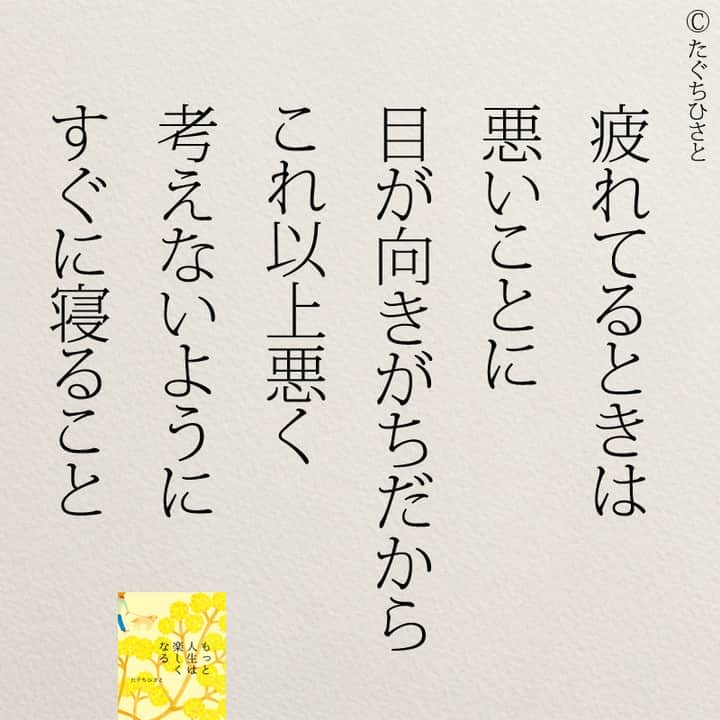 © たぐちひさと
疲れてるときは
悪いことに
目が向きがちだから
これ以上悪く
考えないように
すぐに寝ること
もっと
人生は
楽しく
なる
たぐちひさと